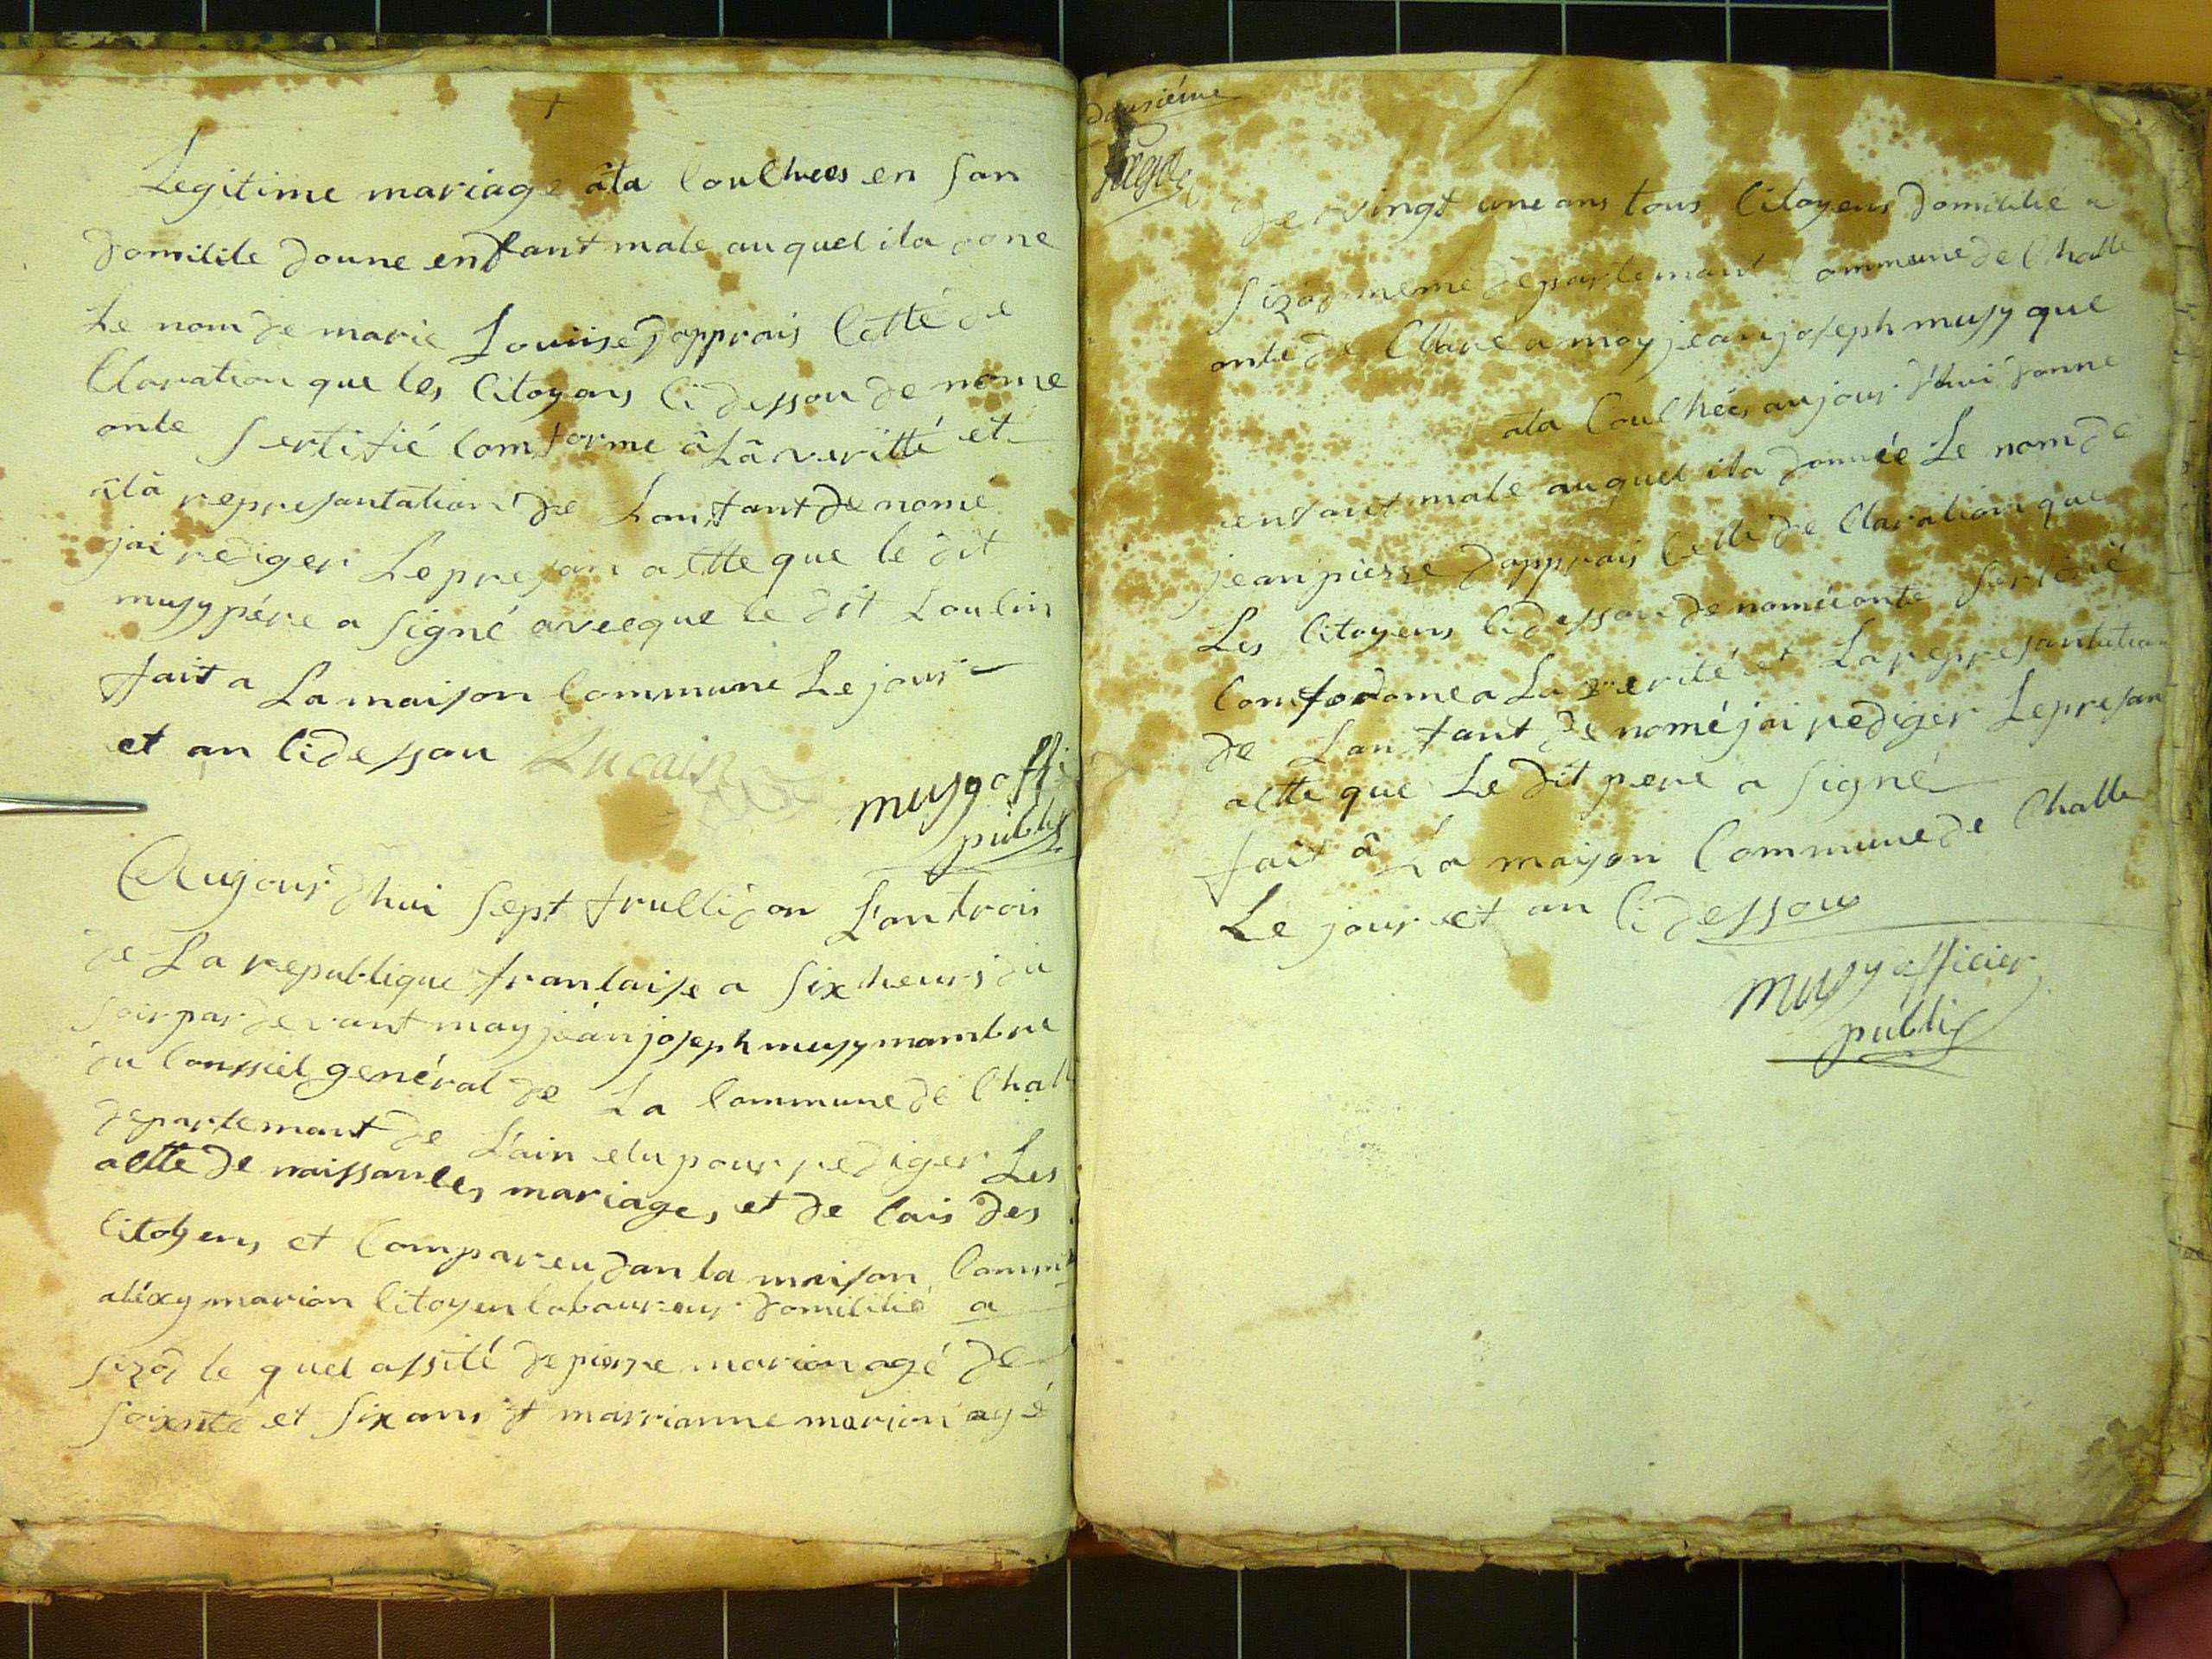 Legitime mariage âta Coulhees en San
domicile doune enfant male auquel ila done
Le nom de marie Louiise dapprais Cette de
Claration que les Citoyens Cidessou denome
onte Sertifié Comforme âLâ veritté et
âlâ represantation de Lanfant denomé
jai rediger Lepresan actte que le dit
musy pére a Signé avecque le dit Loulin
fait a La maison Commune Le jour
et an Cidessou Lucain
musy offi
publi
Aujourdhui Sept fructidor Lan trois
de La republique francaise a Six heurs du
Soir par devant moy jean joseph musy mambre
du Conssiel general de La Commune de Chall
departemant de L'ain elu pour rediger Les
actte de naissances, mariages, et de Cais des
Citoyens et Compareu dan la maison Comm
aléxy marion Citoyen labaureur domicilié a
Sizod le quel assité de pierre marion agé de
Soixnte et Six ans et marrianne marion agé
deusiéme
page
de vingt une ans tous Citoyens domicilié a
Sizod meme departemant Commune de Challe
onte de Clare a moy jean joseph musy que
ata Coulhées aujour d'hui donne
enfant male auquel ila donnée Le nom de
jean pierre dapprais Cette de Claration que
Les Citoyens Cidessou denoméonte Sertifié
Comfodome a La verité et La represantation
de Lanfant denomé jai rediger Lepresan
actte que Le dit pere a Signé
fait â La maison Commune de Challe
Le jour et an Cidessou
musy officier
publi